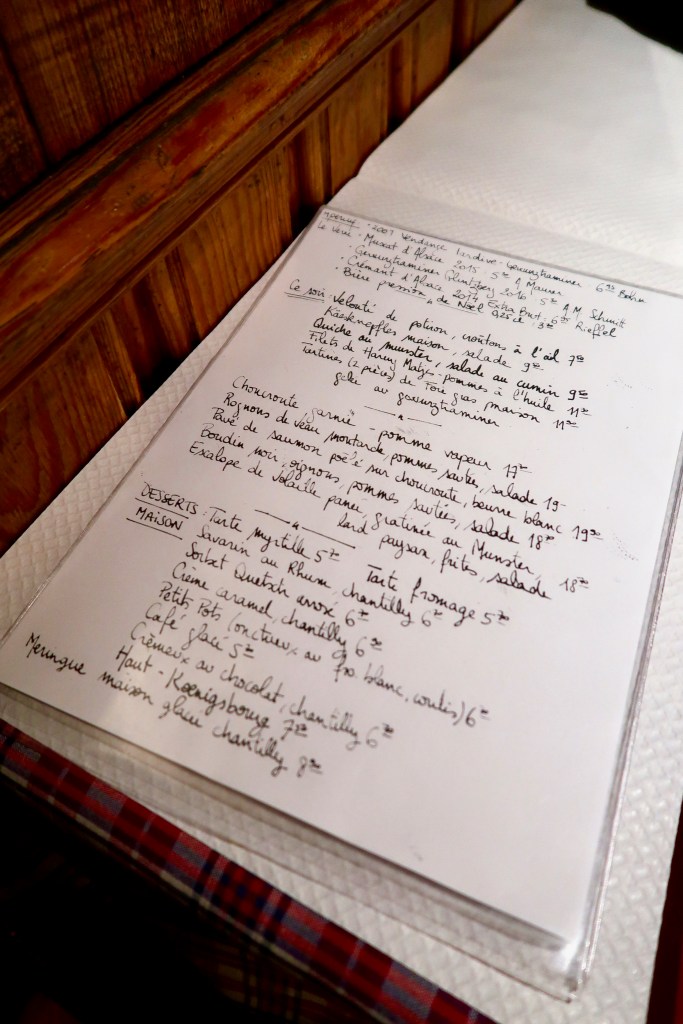 Le verre · 2009 Vendange Tardive Gewurztraminer 6.50 Bohn
· Muscat d'Alsace 2015 5.50 A Maurer
· Gewurztraminer Glintzberg 2016 5.50 A.M. Schmitt
· Crémant d'Alsace 2014 Extra Brut 6.50 Rieffel
· Bière pression de Noël 025 cl 3.50
Ce soir. Velouté de potiron, croûtons à l'ail 7.50
Kaesknepfles maison, salade 9.50
Quiche au munster, salade au cumin 9.50
Filets de Hareng Matjes - pommes à l'huile 11.50
Tartines (2 pièces) de Foie gras maison 11.50
gelée au gewurztraminer
Choucroute garnie - pomme vapeur 17.50
Rognons de veau moutarde, pommes sautées, salade 19-
Pavé de saumon poêlé sur choucroute, beurre blanc 19.50
Boudin noir, oignons, pommes sautées, salade 18.50
Escalope de Volaille panée, gratinée au Munster,
lard paysan, frites, salade 18.50
DESSERTS MAISON
Tarte myrtille 5.50 Tarte fromage 5.50
Savarin au Rhum, chantilly 6.50
Sorbet Quetsch arrosé 6.50
Crème caramel, chantilly 6.50
Petits Pots (onctueux au fro. blanc, coulis) 6.50
Café glacé 5.50
Crémeux au chocolat, chantilly 6.50
Haut-Koenigsbourg 7.50
Meringue maison glacée chantilly 8.50